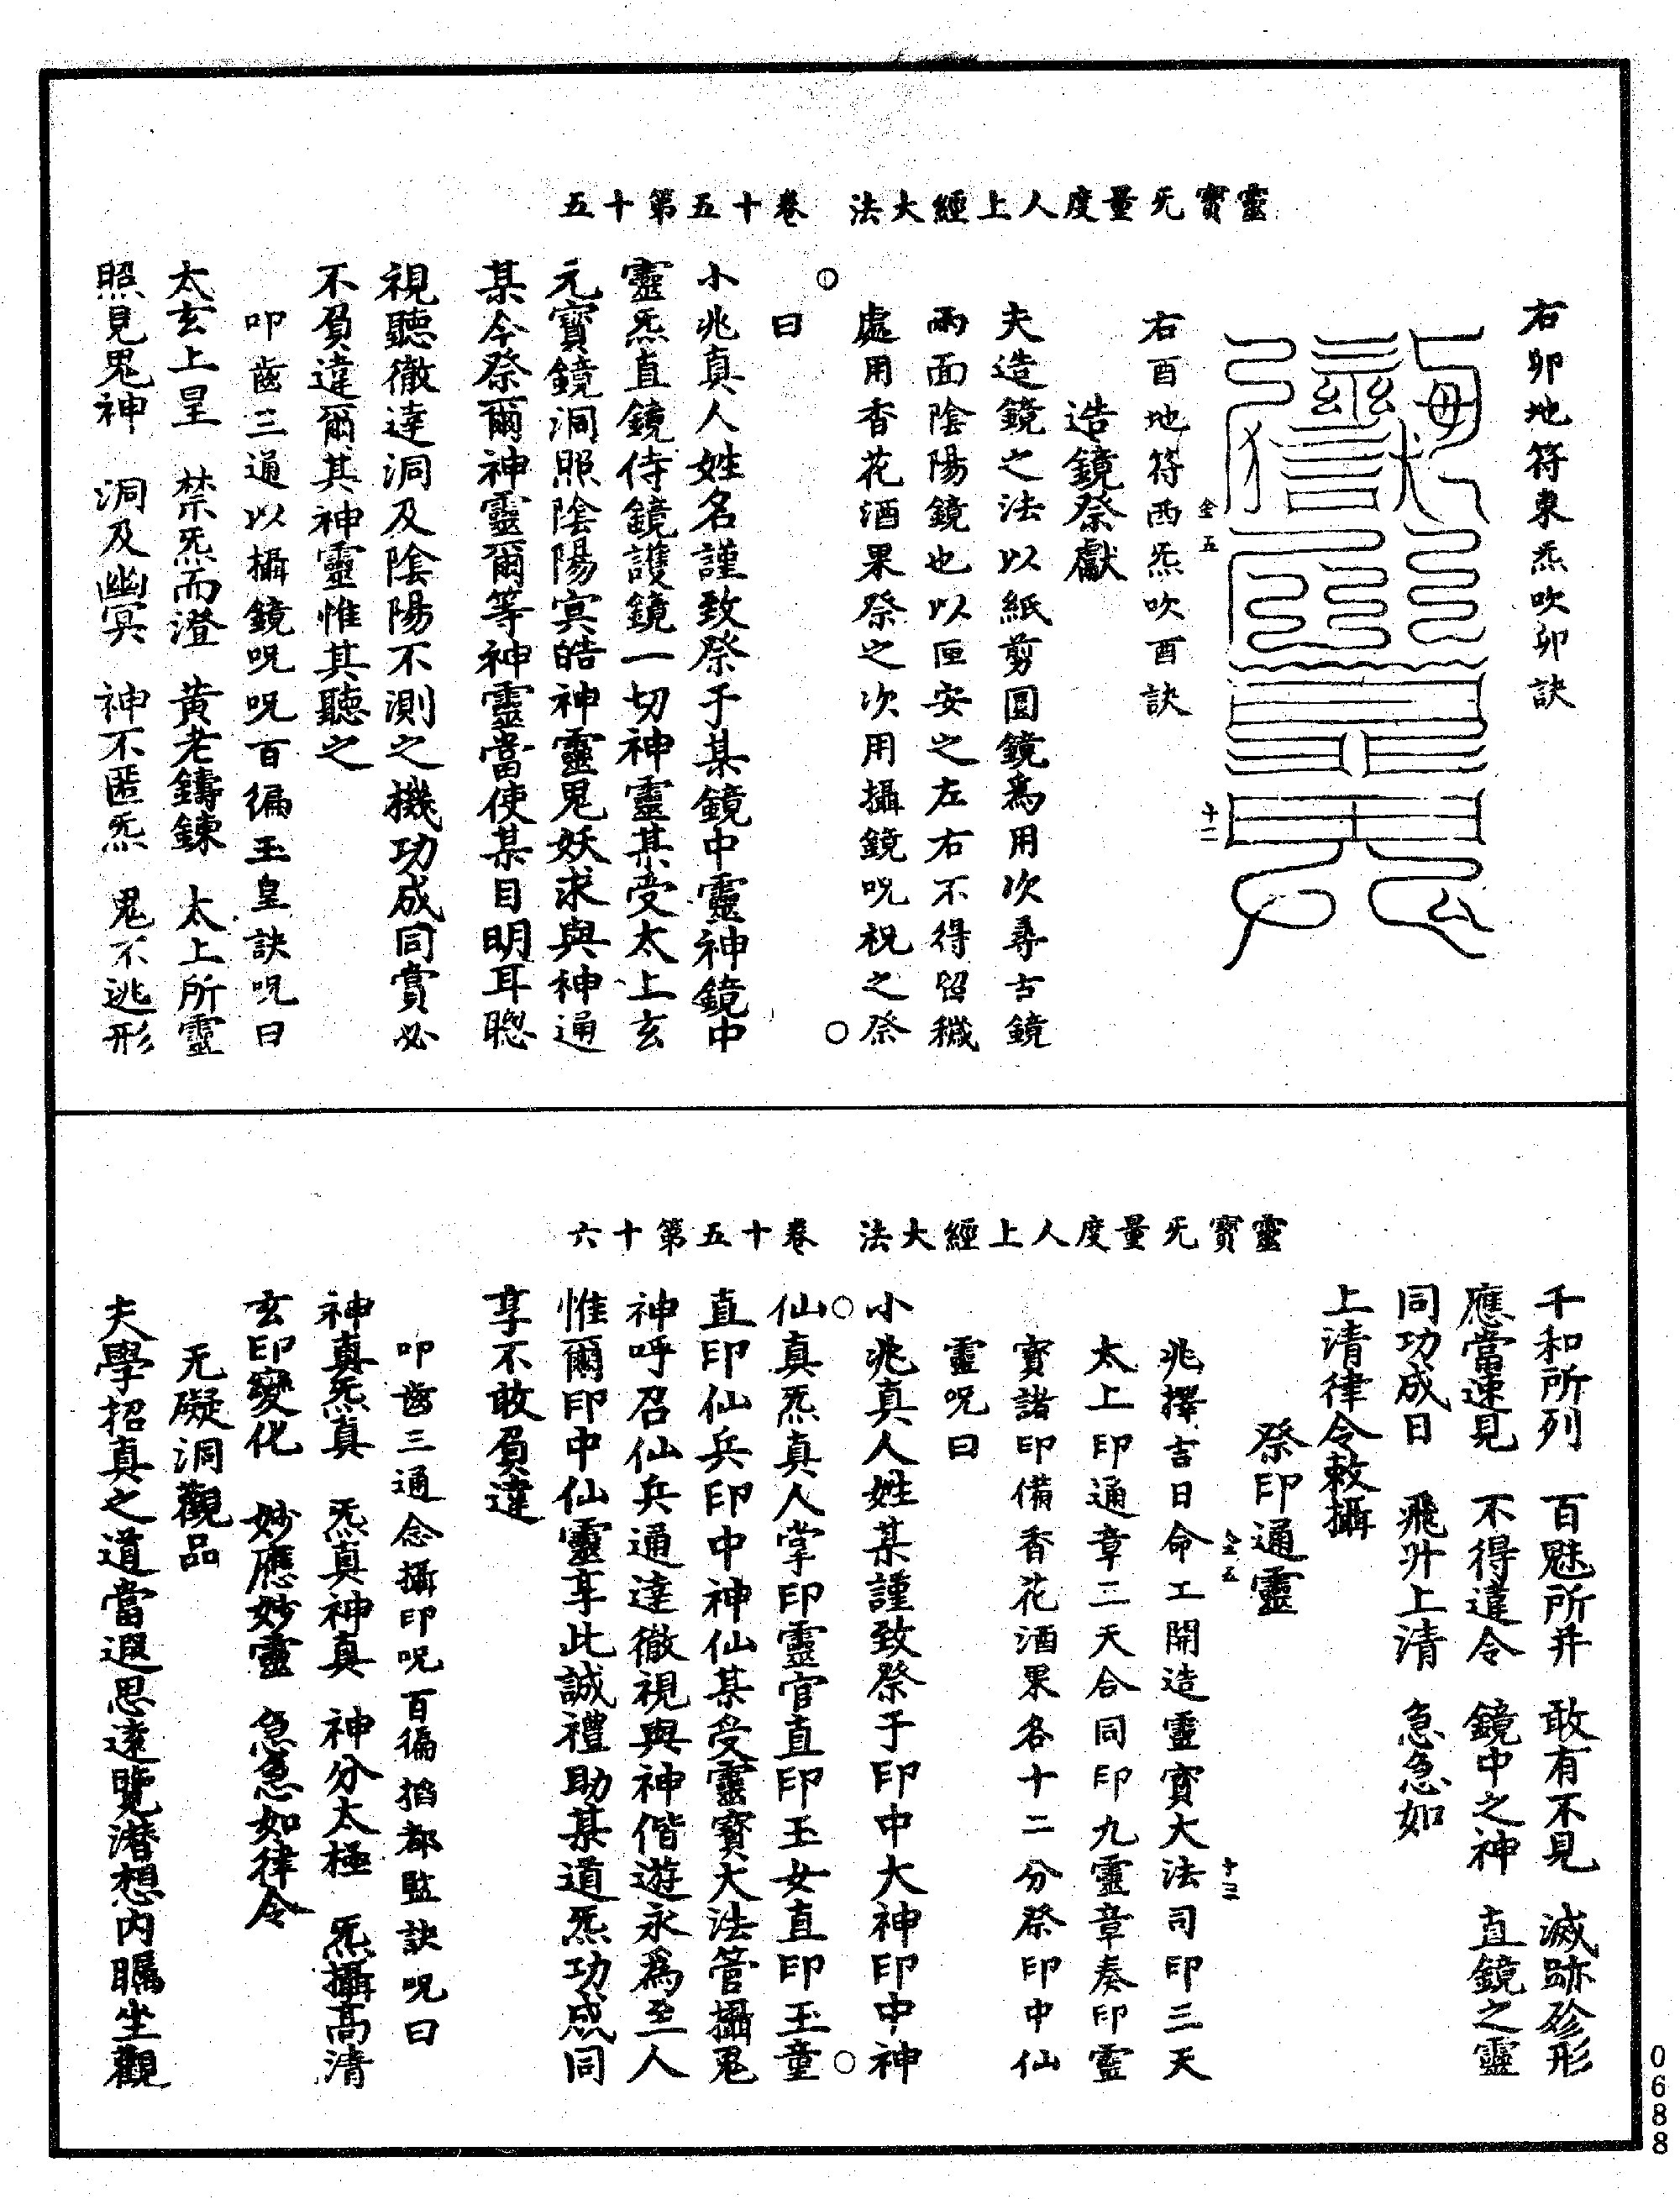 靈寶无量度人上經大法　卷十五第十五
右卯地符東炁吹卯訣
右酉地符西炁吹酉訣
全五
十二
造鏡祭獻
夫造鏡之法以紙剪圓鏡爲用次尋古鏡
兩面陰陽鏡也以匣安之左右不得留穢
處用香花酒果祭之次用攝鏡呪祝之祭
曰
小兆真人姓名謹致祭于某鏡中靈神鏡中
靈炁直鏡侍鏡護鏡一切神靈某受太上玄
元寶鏡洞照陰陽冥皓神靈鬼妖求與神通
某今祭爾神靈爾等神靈當使某目明耳聰
視聽徹達洞及陰陽不測之機功成同賞必
不負違爾其神靈惟其聽之
叩齒三通以攝鏡呪呪百徧玉皇訣呪曰
太玄上皇　禁炁而澄　黃老鑄鍊　太上所靈
照見鬼神　洞及幽冥　神不匿炁　鬼不逃形
靈寶无量度人上經大法　卷十五第十六
千和所列　百魅所并　敢有不見　滅跡殄形
應當速見　不得違令　鏡中之神　直鏡之靈
同功成日　飛升上清　急急如
上清律令敕攝
祭印通靈
全五
十三
兆擇吉日命工開造靈寶大法司印三天
太上印通章二天合同印九靈章奏印靈
寶諸印備香花酒果各十二分祭印中仙
靈呪曰
小兆真人姓某謹致祭于印中大神印中神
仙真炁真人掌印靈官直印玉女直印玉童
直印仙兵印中神仙某受靈寶大法管攝鬼
神呼召仙兵通達徹視與神偕遊永爲至人
惟爾印中仙靈享此誠禮助某道炁功成同
享不敢負違
叩齒三通念攝印呪百徧掐都監訣呪曰
神真炁真　炁真神真　神分太極　炁攝高清
玄印變化　妙應妙靈　急急如律令
无礙洞觀品
夫學招真之道當遐思遠覽潛想内矚坐觀
0688